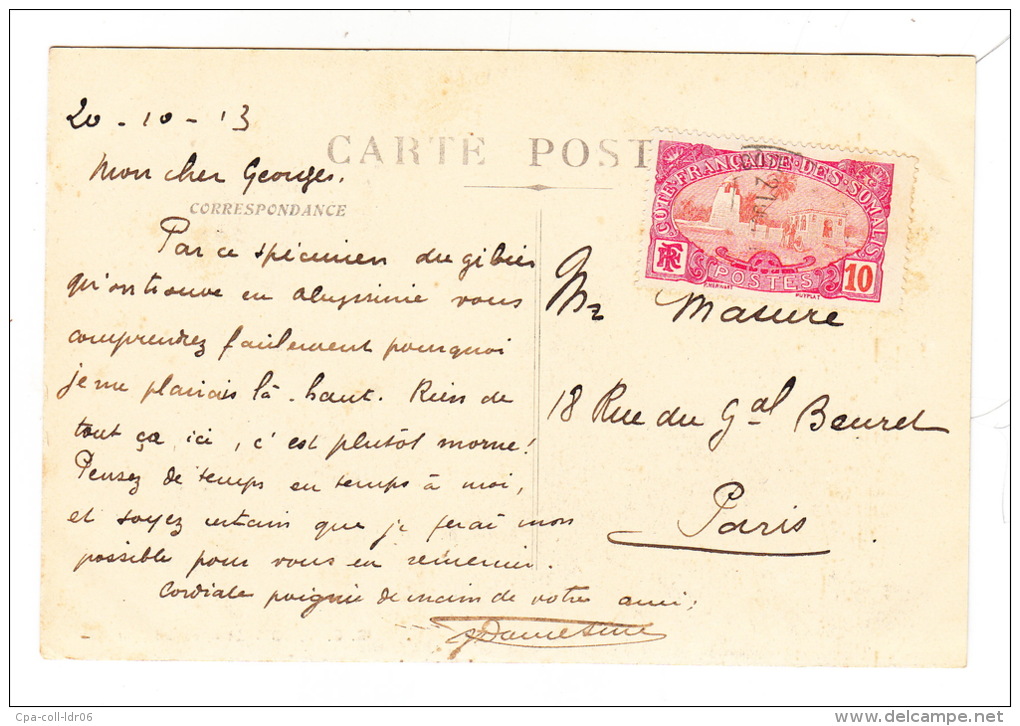 20-10-13
CARTE POST
Mon cher Georges.
CORRESPONDANCE
Par ce spécimen du gibier
qu'on trouve en Abyssinie vous
comprendrez facilement pourquoi
je me plaisais là-haut. Rien de
tout ça ici, c'est plutôt morne!
Pensez de temps en temps à moi,
et soyez certain que je ferai mon
possible pour vous en remercier.
Cordiale poignée de main de votre ami:
CÔTE·FRANÇAISE·DES·SOMALIS
RF
POSTES
10
PUYPLAT
Mr Masure
18 Rue du Gal Beuret
Paris
Cpa-coll-ldr06
delcampe.net